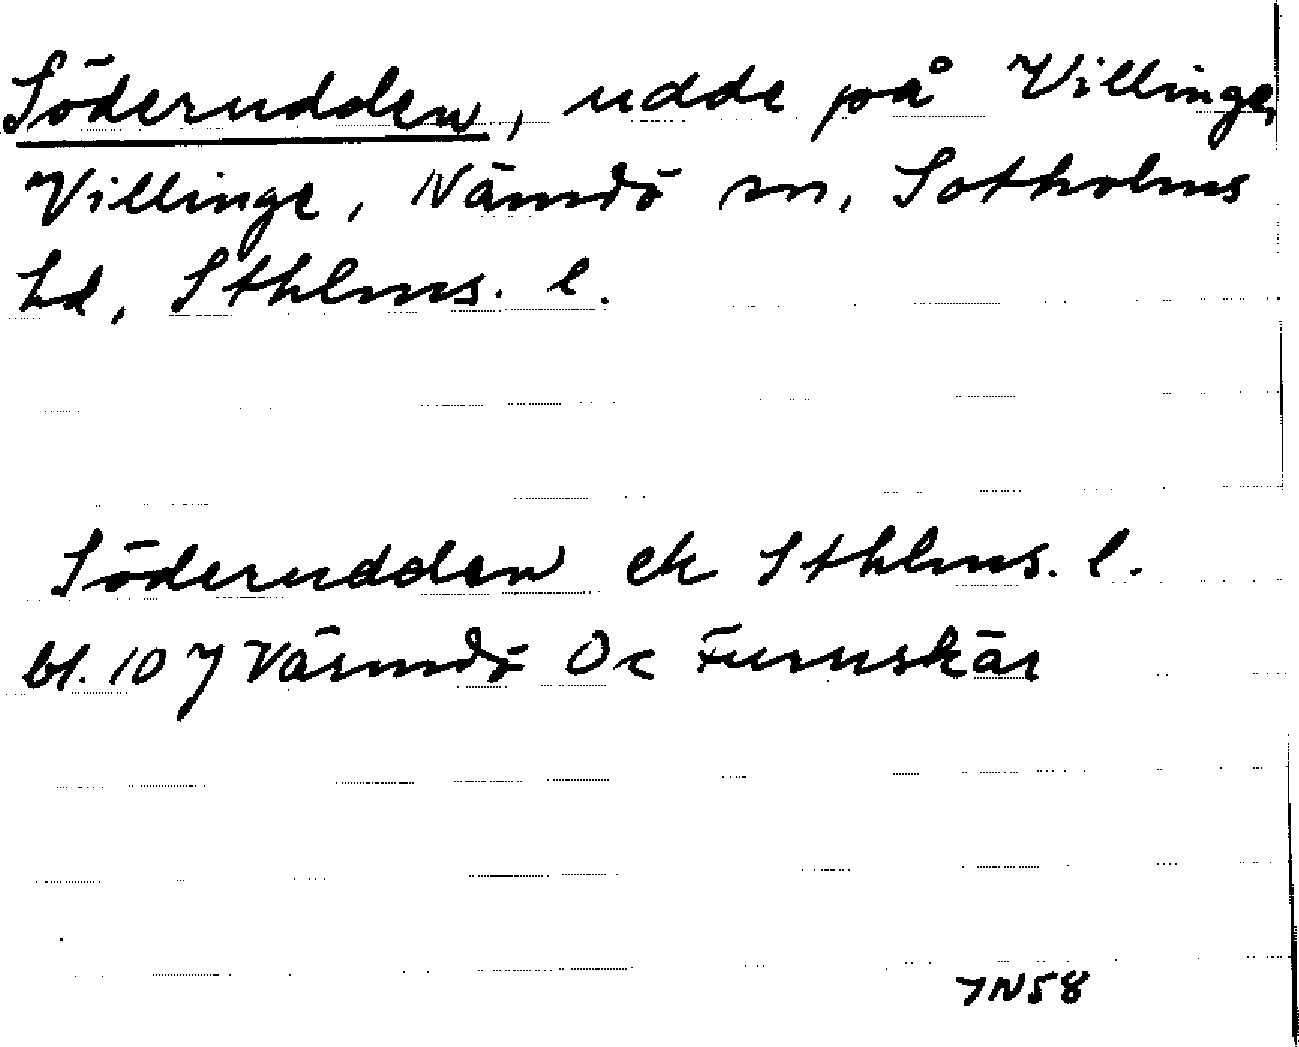 Söderudden, udde på Villinge,
Villinge, Nämdö sn, Sotholms
hd, Sthlms. l.
Söderudden ek Sthlms. l.
bl. 107 Värmdö Oc Furuskär
7N58